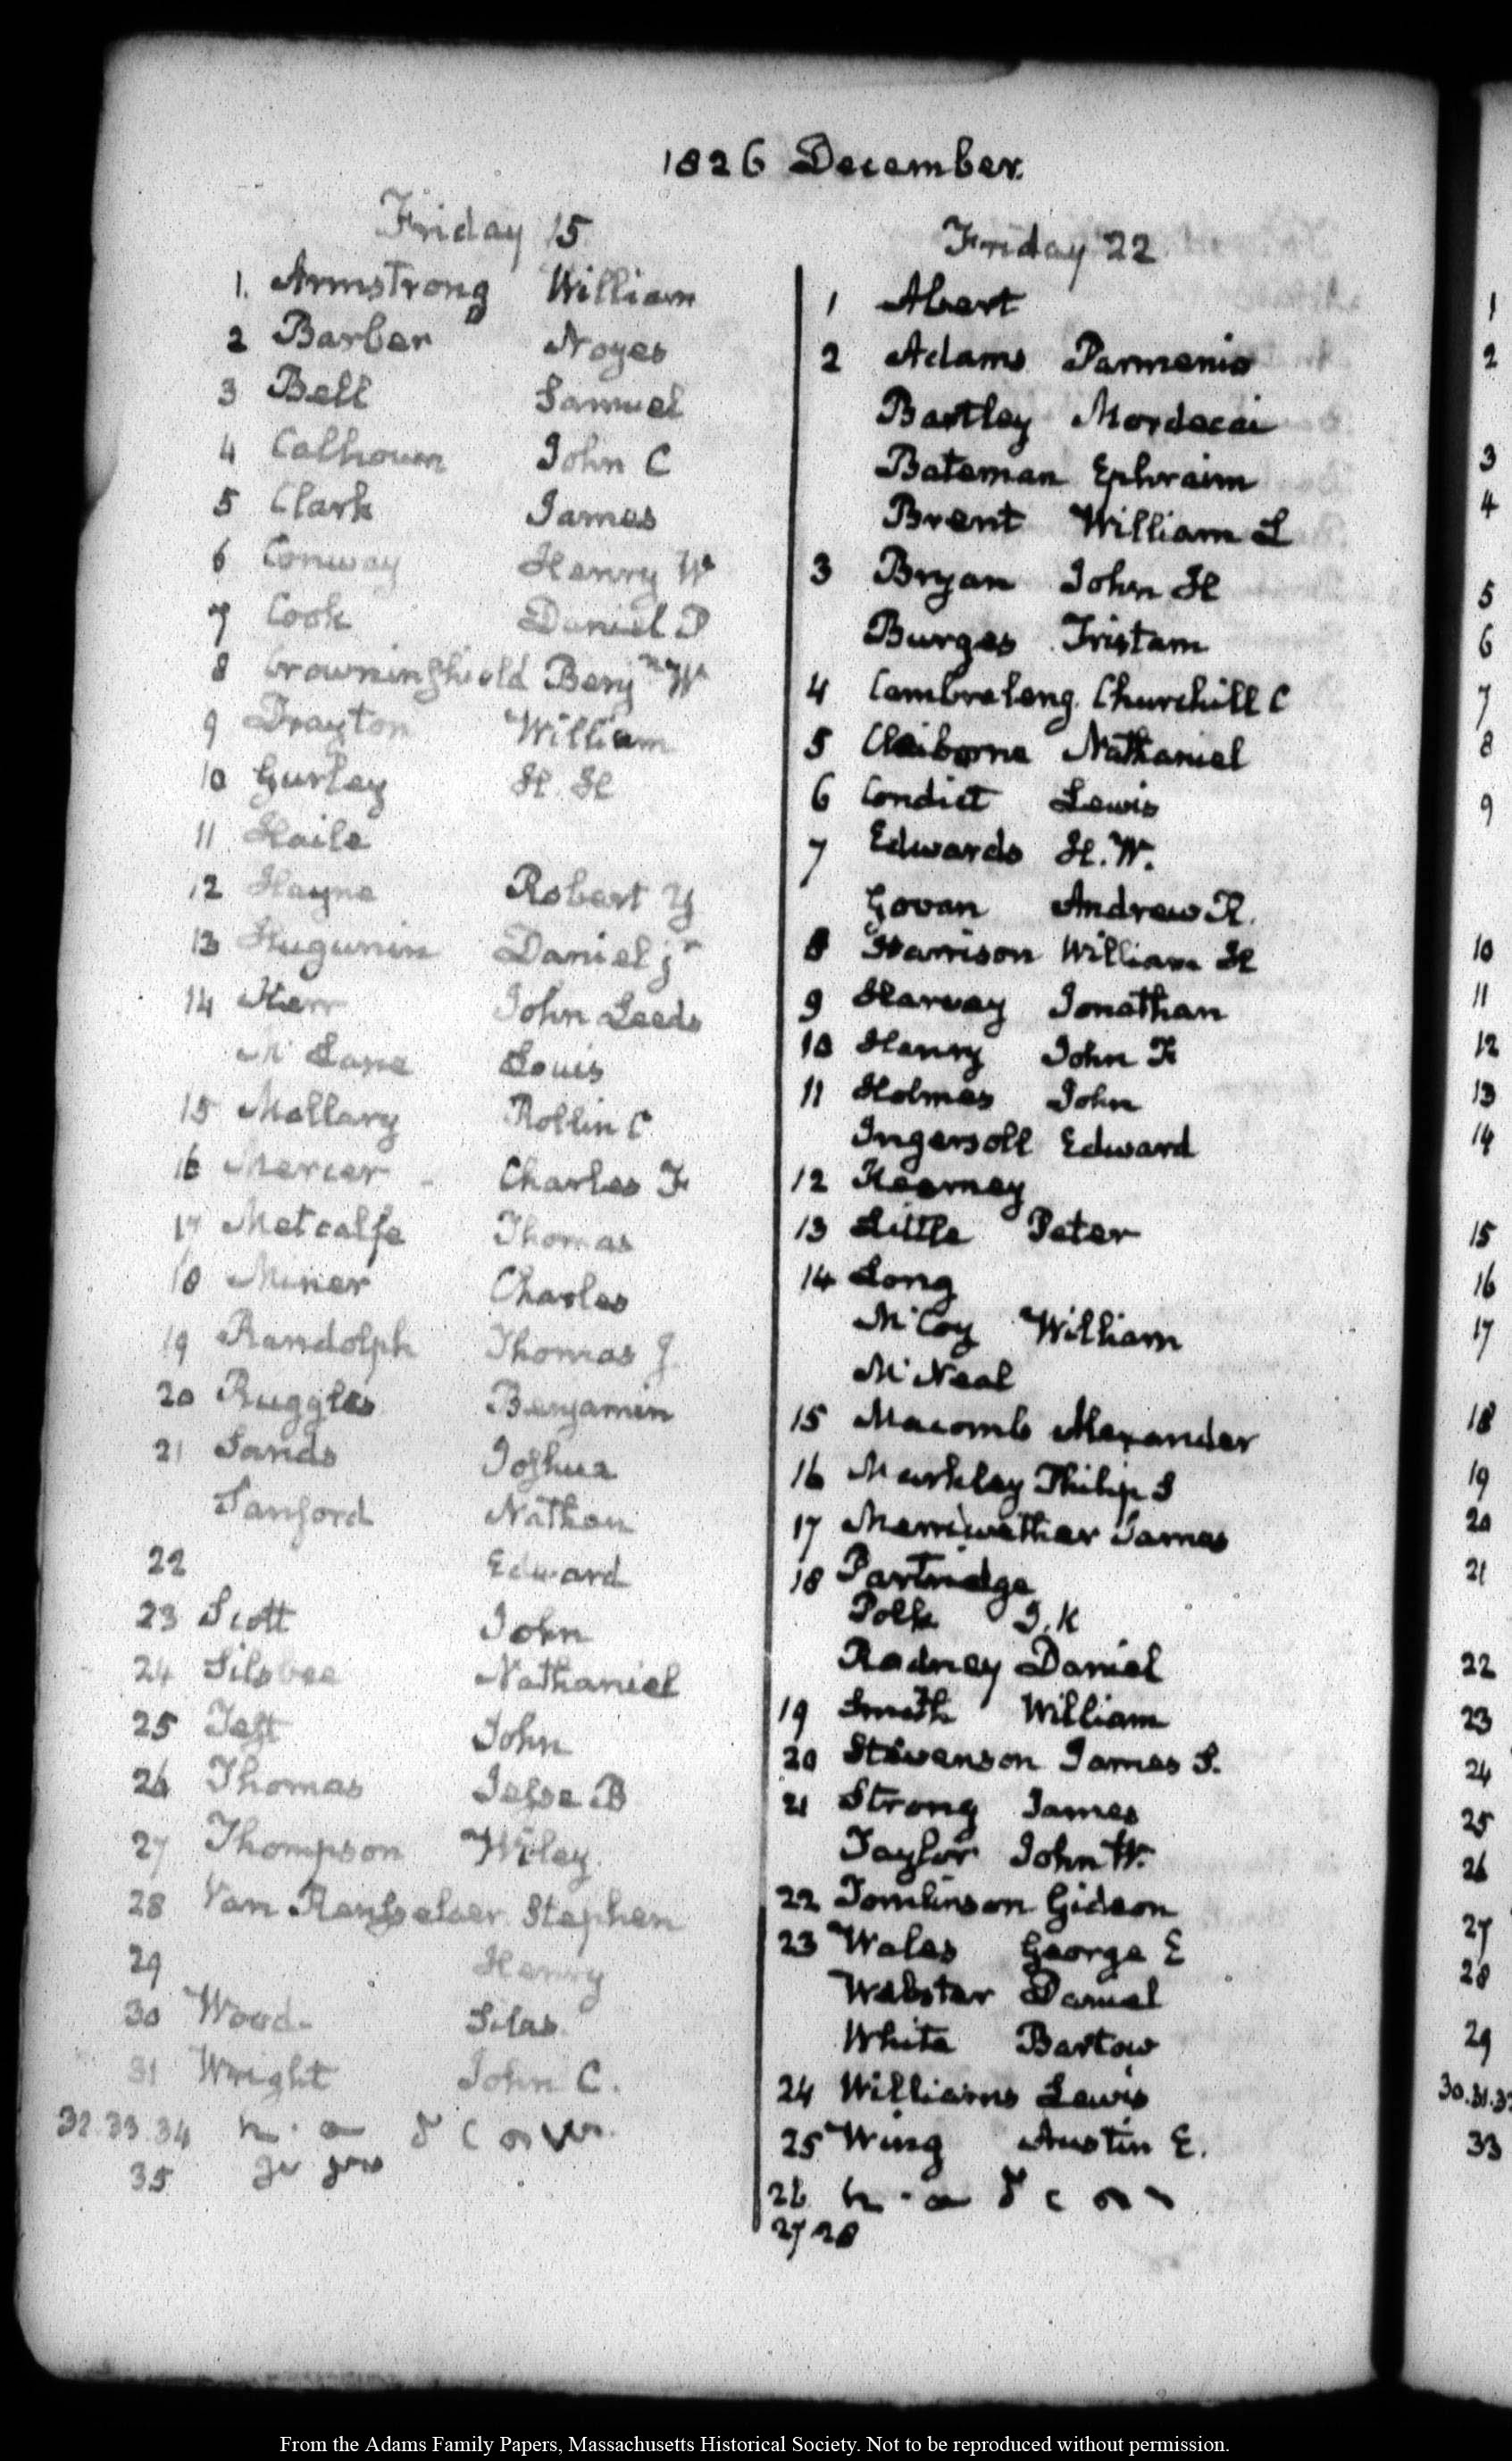 1826 December.
Friday 15
1. Armstrong William
2 Barber Noyes
3 Bell Samuel
4 Calhoun John C
5 Clark James
6 Conway Henry W
7 Cook Daniel P
8 Crowninshield Benjn W
9 Drayton William
10 Gurley H. H
11 Haile
12 Hayne Robert Y
13 Hugunin Daniel jr
14 Kerr John Leeds
McLane Louis
15 Mallary Rollin C
16 Mercer Charles F
17 Metcalfe Thomas
18 Miner Charles
19 Randolph Thomas J
20 Ruggles Benjamin
21 Sands Joshua
Sanford Nathan
22 Edward
23 Scott John
24 Silsbee Nathaniel
25 Test John
26 Thomas Jesse B
27 Thompson Wiley
28 Van Rensselaer Stephen
29 Henry
30 Wood Silas
31 Wright John C.
32.33.34
35
Friday 22
1 Abert
2 Adams Parmenio
Bartley Mordecai
Bateman Ephraim
Brent William L
3 Bryan John H
Burges Tristam
4 Cambreleng Churchill C
5 Claiborne Nathaniel
6 Condict Lewis
7 Edwards H. W.
Govan Andrew R.
8 Harrison William H
9 Harvey Jonathan
10 Henry John F
11 Holmes John
Ingersoll Edward
12 Kearney
13 Little Peter
14 Long
McCoy William
McNeal
15 Macomb Alexander
16 Markley Philip S
17 Merriwether James
18 Partridge
Polk J. K
Rodney Daniel
19 Smith William
20 Stevenson James S.
21 Strong James
Taylor John W.
22 Tomlinson Gideon
23 Wales George E
Webster Daniel
White Bartow
24 Williams Lewis
25 Wing Austin E.
26
27 28
1
2
3
4
5
6
7
8
9
10
11
12
13
14
15
16
17
18
19
20
21
22
23
24
25
26
27
28
29
30.31.3
33
From the Adams Family Papers, Massachusetts Historical Society. Not to be reproduced without permission.